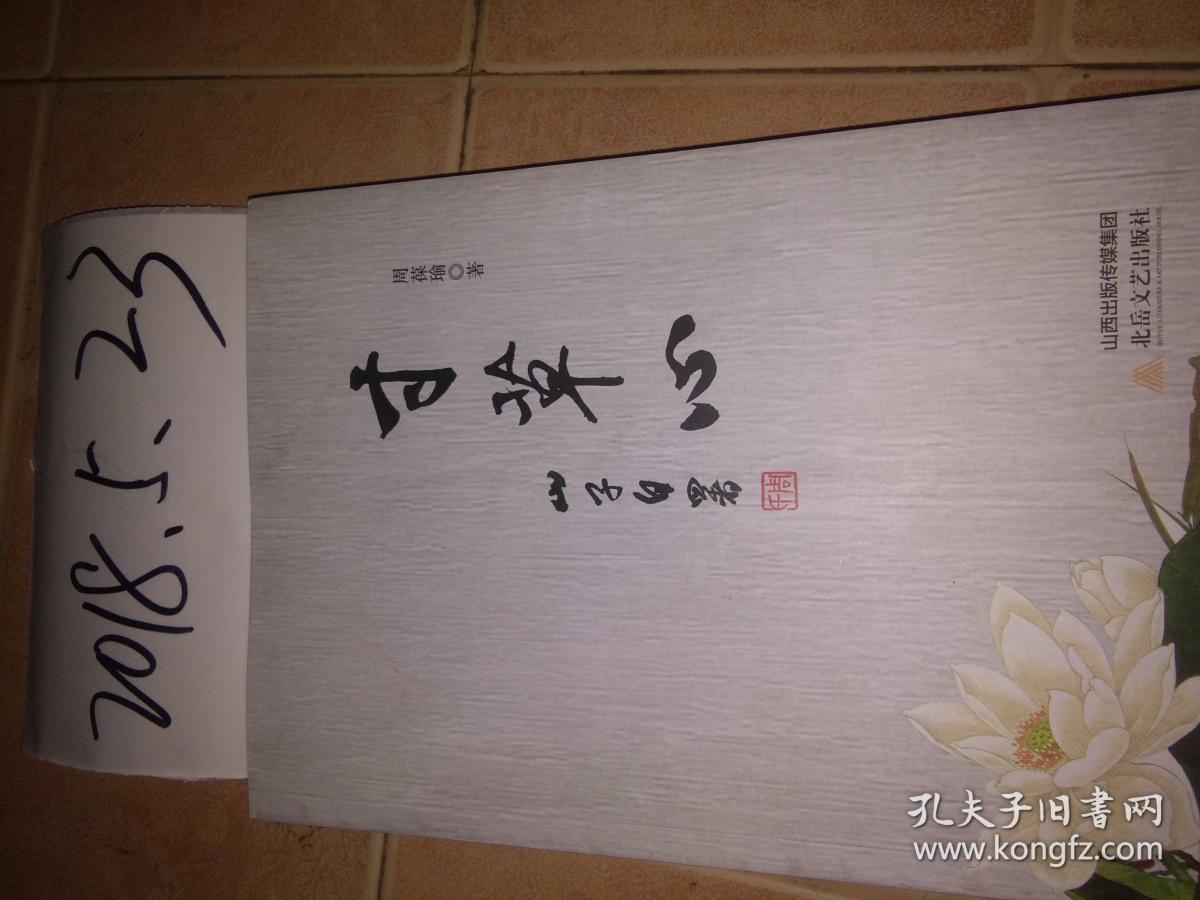 2018.5.23
周葆瑜◎著
甘草心
山子自署
山西出版传媒集团
北岳文艺出版社
BEIYUE LITERATURE & ART PUBLISHING HOUSE
孔夫子旧书网
www.kongfz.com